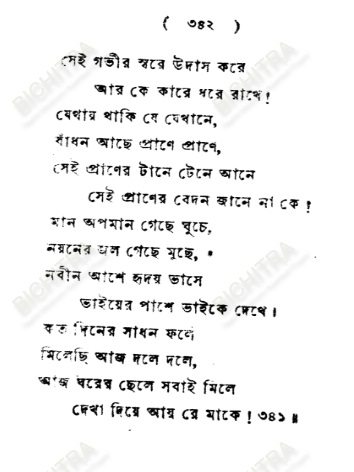 ( ৩৪২ )
সেই গভীর স্বরে উদাস করে
আর কে কারে ধরে রাখে!
যেথায় থাকি যে যেখানে,
বাঁধন আছে প্রাণে প্রাণে,
সেই প্রাণের টানে টেনে আনে
সেই প্রাণের বেদন জানে না কে!
মান অপমান গেছে ঘুচে,
নয়নের জল গেছে মুছে,
নবীন আশে হৃদয় ভাসে
ভাইয়ের পাশে ভাইকে দেখে।
কত দিনের সাধন ফলে
মিলেছি আজ দলে দলে,
আজ ঘরের ছেলে সবাই মিলে
দেখা দিয়ে আয় রে মাকে! ৩৪১॥
BICHITRA
BICHITRA
BICHITRA
BICHITRA
BICHITRA
BICHITRA